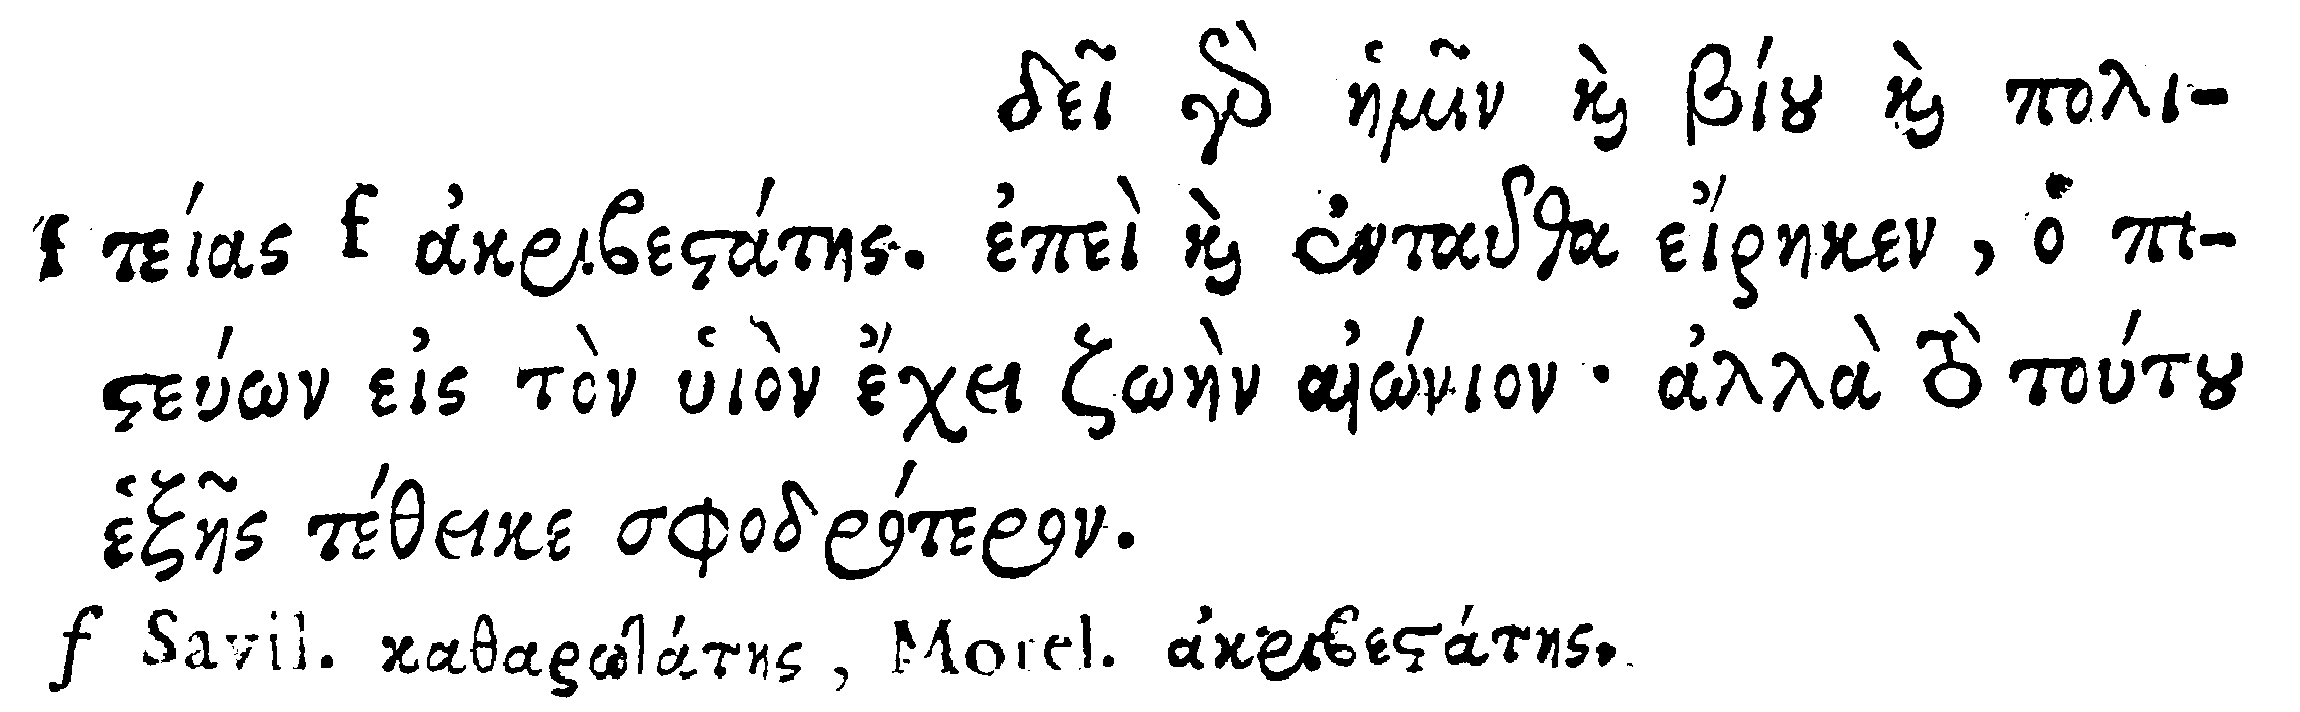 δεῖ γὰρ ἡμῖν καὶ βίου καὶ πολι-
f τείας f ἀκριβεστάτης. ἐπεὶ καὶ ἐνταῦθα εἴρηκεν, ὁ πι-
στεύων εἰς τὸν υἱὸν ἔχει ζωὴν αἰώνιον· ἀλλὰ τὸ τούτου
ἑξῆς τέθεικε σφοδρότερον.
f Savil. καθαρωτάτης, Morel. ἀκριβεστάτης.